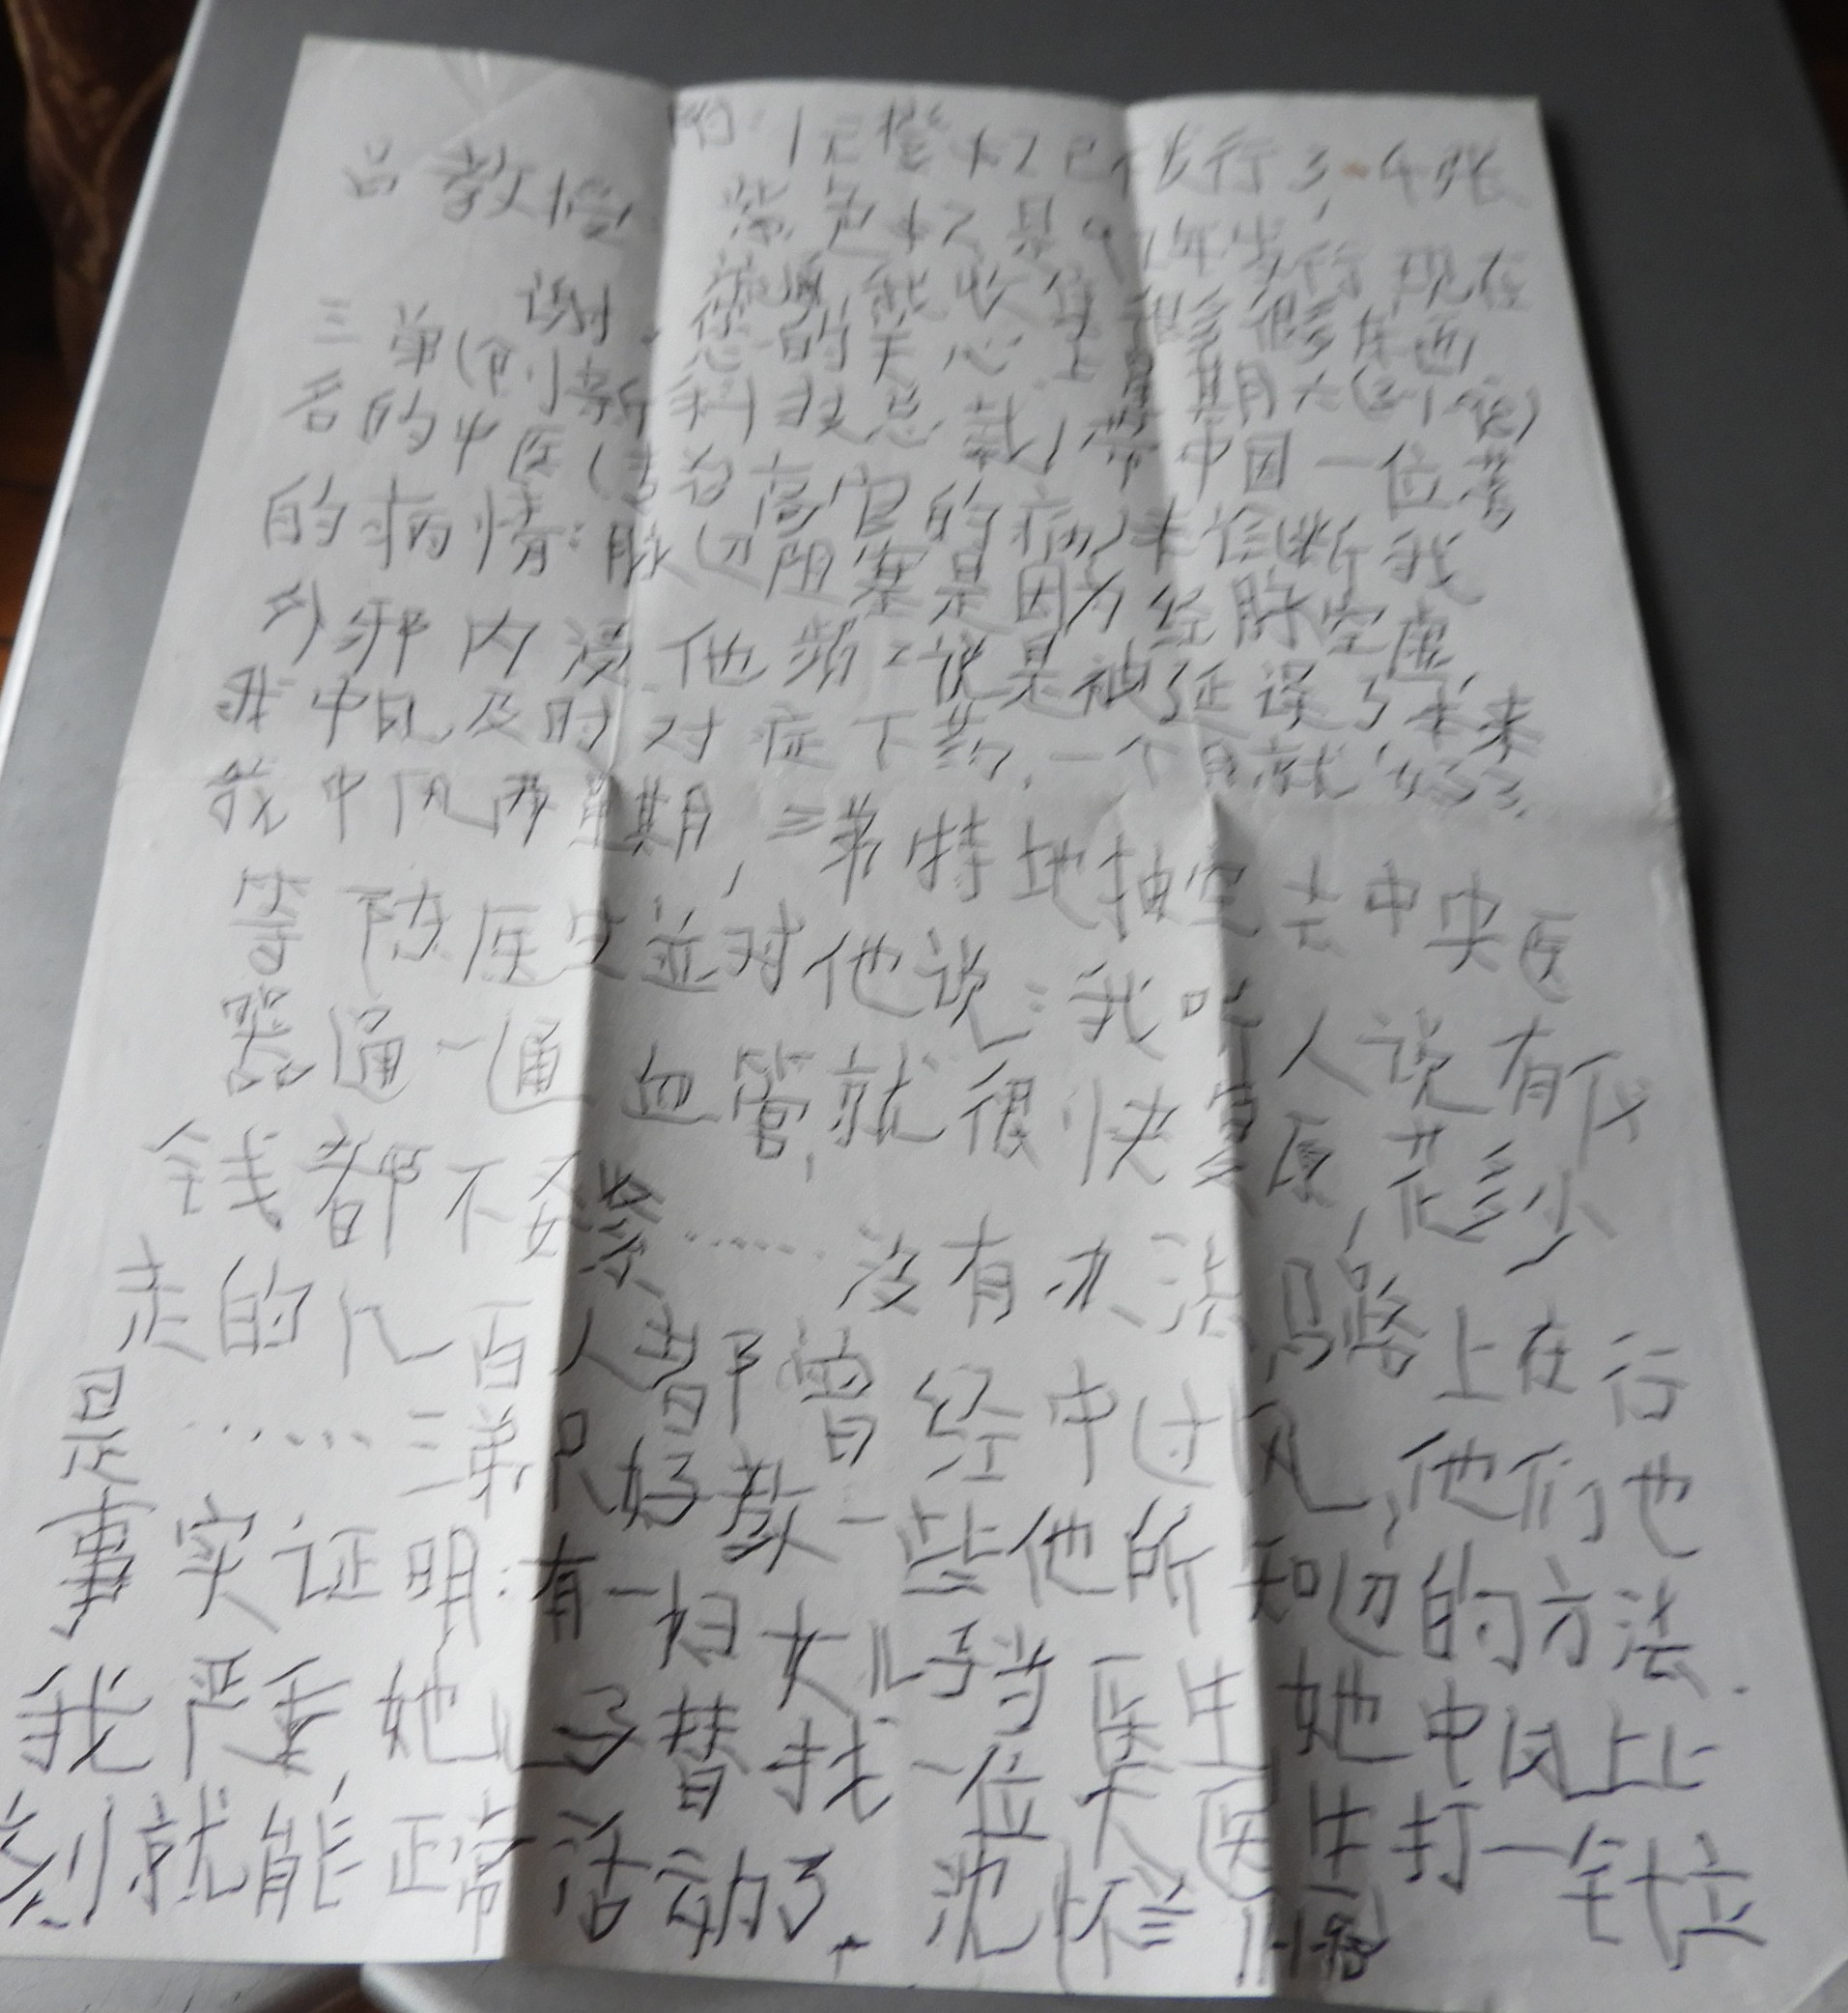 附:1元橙 已发行3.4张
吕教授: 紫色 是 年发行,现在
能收集 很多东西
谢谢您的关心.上星期六(三小
三弟(创新科技总裁)带中国一位著
名的中医( 治高官的病)来诊断我
的病情:脉 阻塞是因为经脉空虚,
外邪内浸.他频々说是被延误了.本来
我中风及时对症下药,一个月就好了.
我中风两星期,三弟特地抽空去中央医
院 陈医生並对他说:我听人说有仪
器通一通血管,就很快复原,花多少
钱都不要紧……没有办法,马路上在行
走的几百人都曾经中过风,他们也
是……三弟只好教一些他所知道的方法.
事实证明:有一妇女 医生她中风比
我严重,她 了替找一位 医生打一针立
刻就能正常活动了. 沈怀